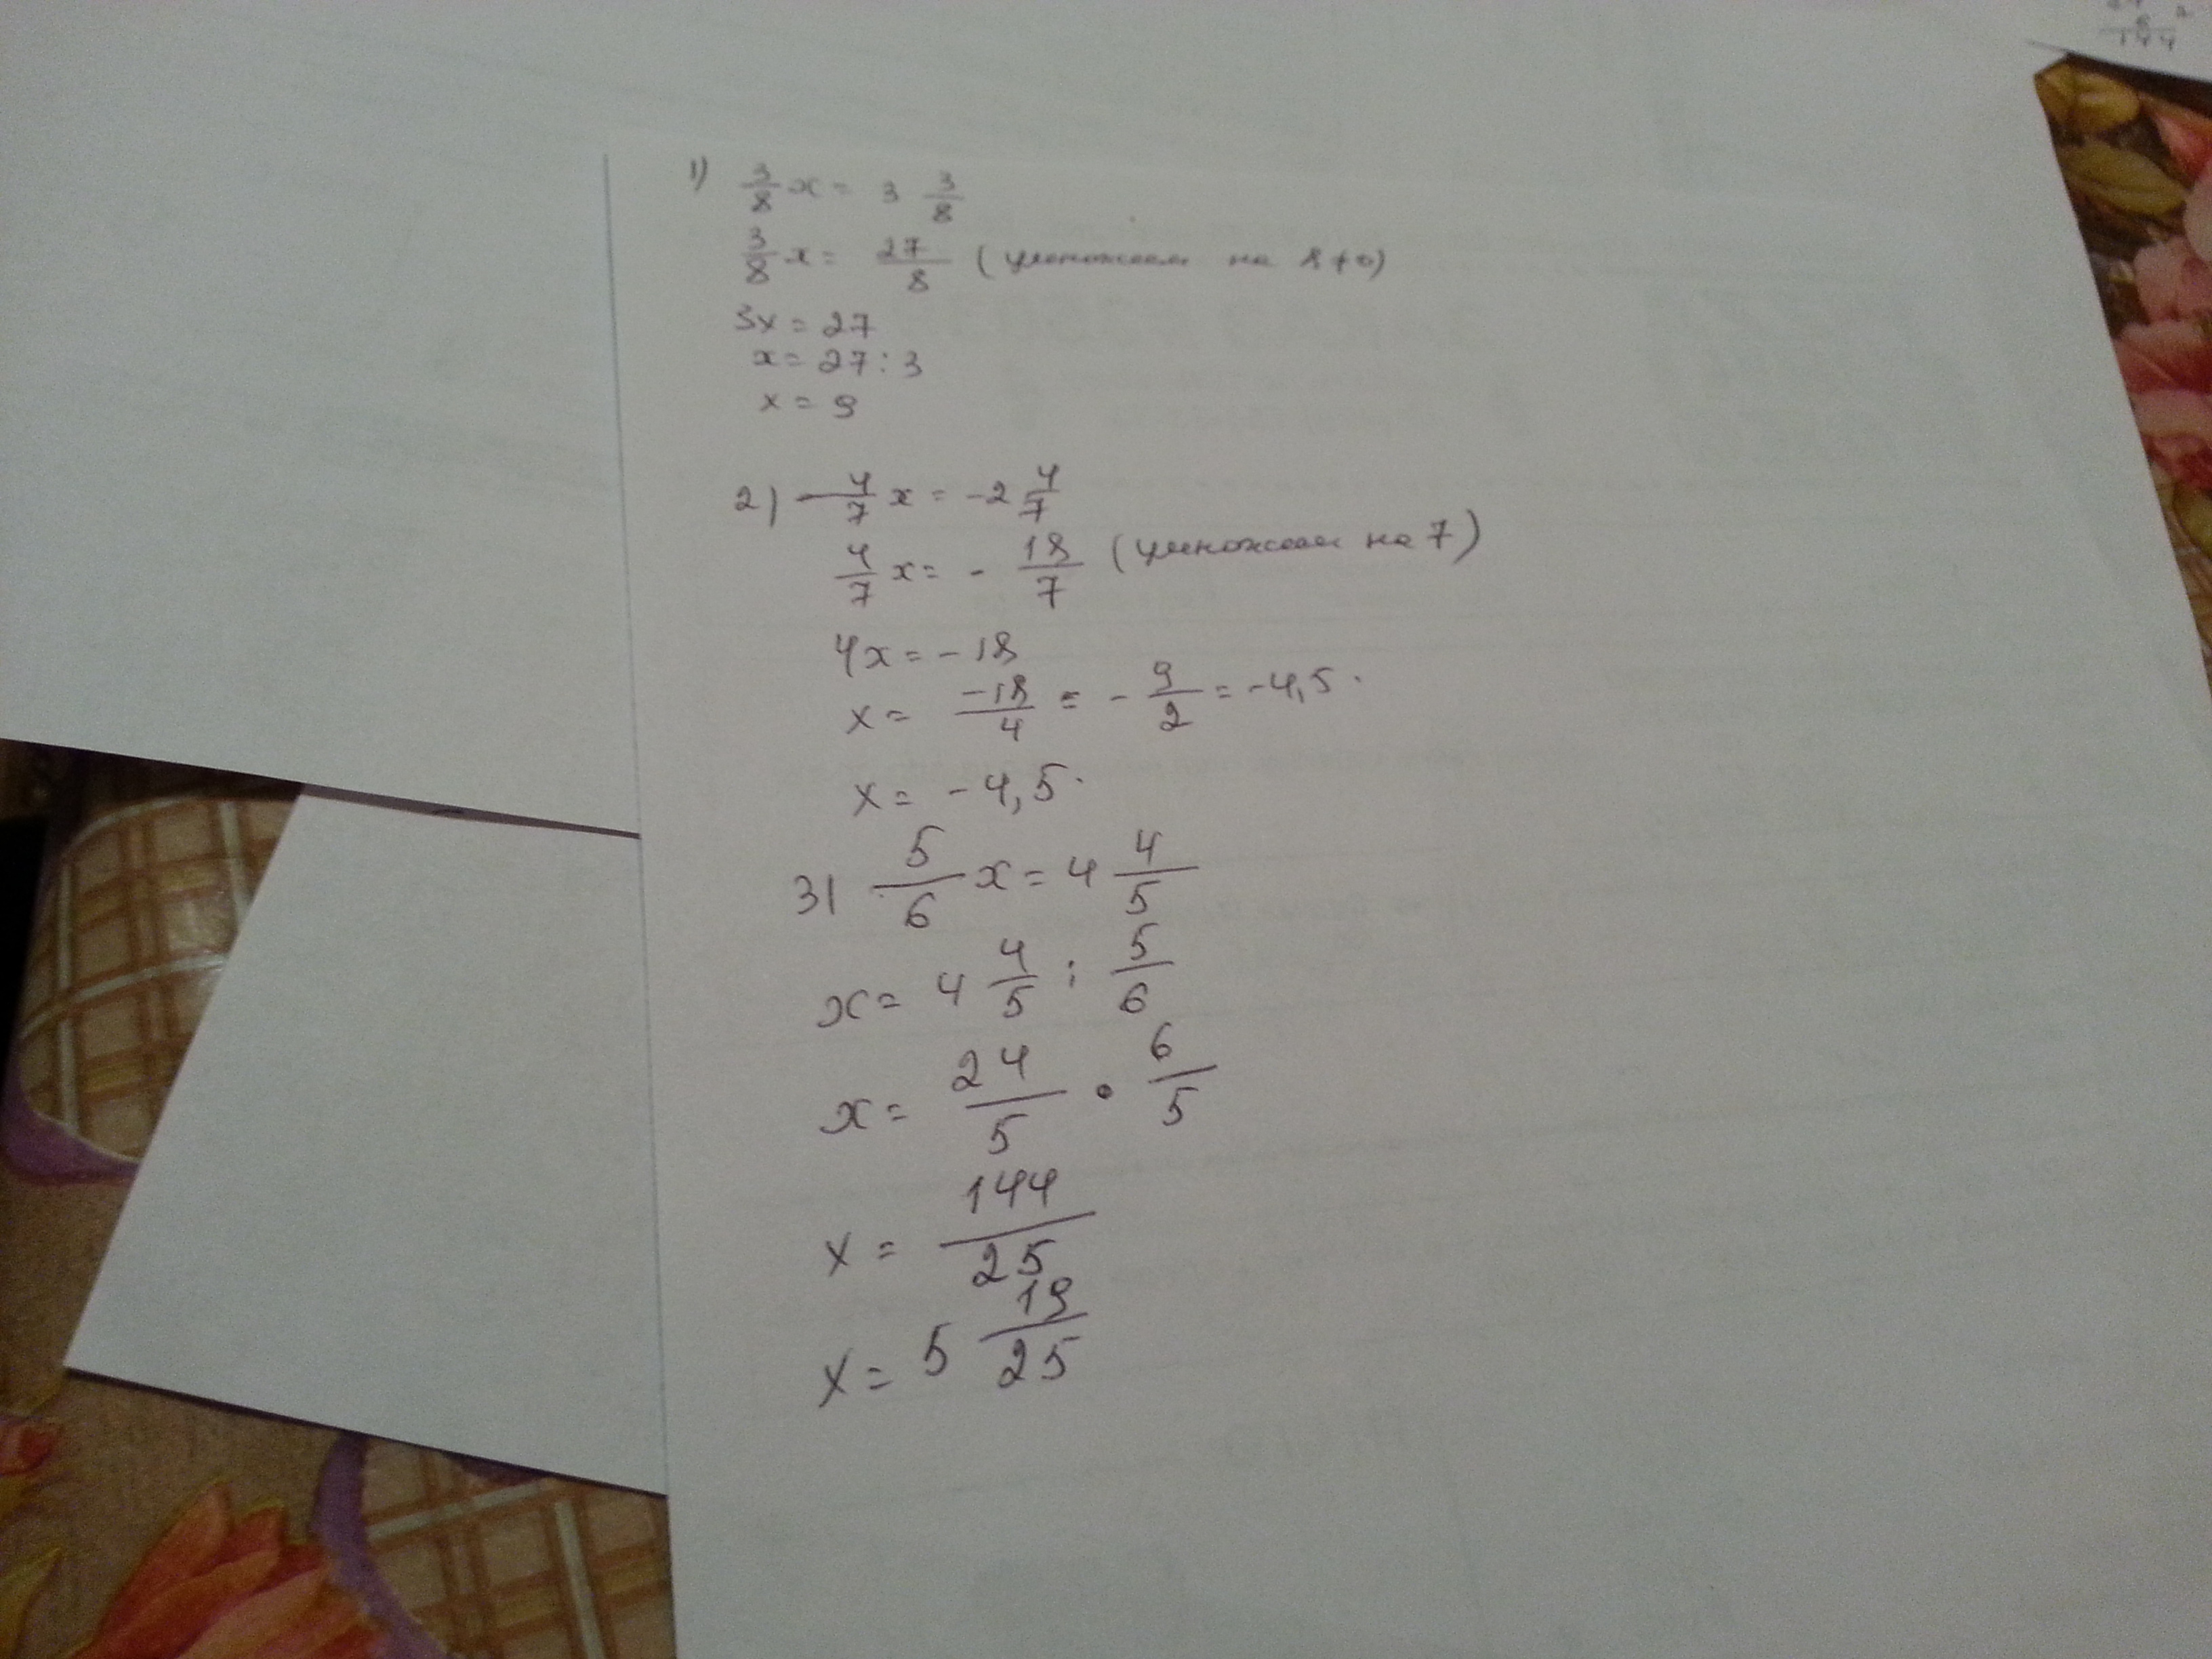 1) 3/8 x = 3 3/8
3/8 x = 27/8 (умножаем на 8≠0)
3x = 27
x = 27 : 3
x = 9
2) — 4/7 x = -2 4/7
4/7 x = - 18/7 (умножаем на 7)
4x = -18
x = -18/4 = - 9/2 = -4,5.
x = -4,5.
3) 5/6 x = 4 4/5
x = 4 4/5 : 5/6
x = 24/5 • 6/5
x = 144/25
x = 5 19/25
144